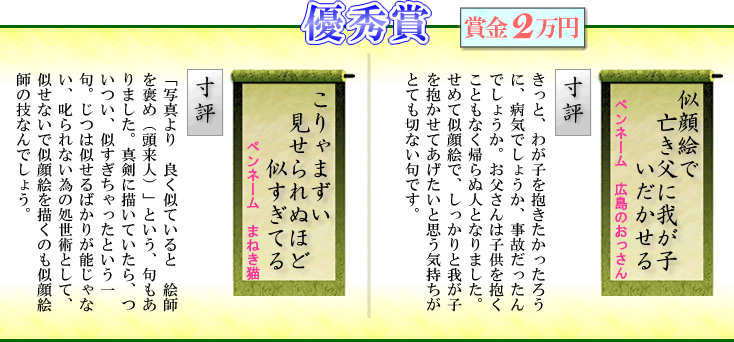 優秀賞
賞金2万円
似顔絵で
亡き父に我が子
いだかせる
ペンネーム 広島のおっさん
寸評
きっと、わが子を抱きたかったろう
に、病気でしょうか、事故だったん
でしょうか。お父さんは子供を抱く
こともなく帰らぬ人となりました。
せめて似顔絵で、しっかりと我が子
を抱かせてあげたいと思う気持ちが
とても切ない句です。
こりゃまずい
見せられぬほど
似すぎてる
ペンネーム まねき猫
寸評
「写真より 良く似ていると 絵師
を褒め（頭来人）」という、句もあ
りました。真剣に描いていたら、つ
いつい、似すぎちゃったという一
句。じつは似せるばかりが能じゃな
い、叱られない為の処世術として、
似せないで似顔絵を描くのも似顔絵
師の技なんでしょう。